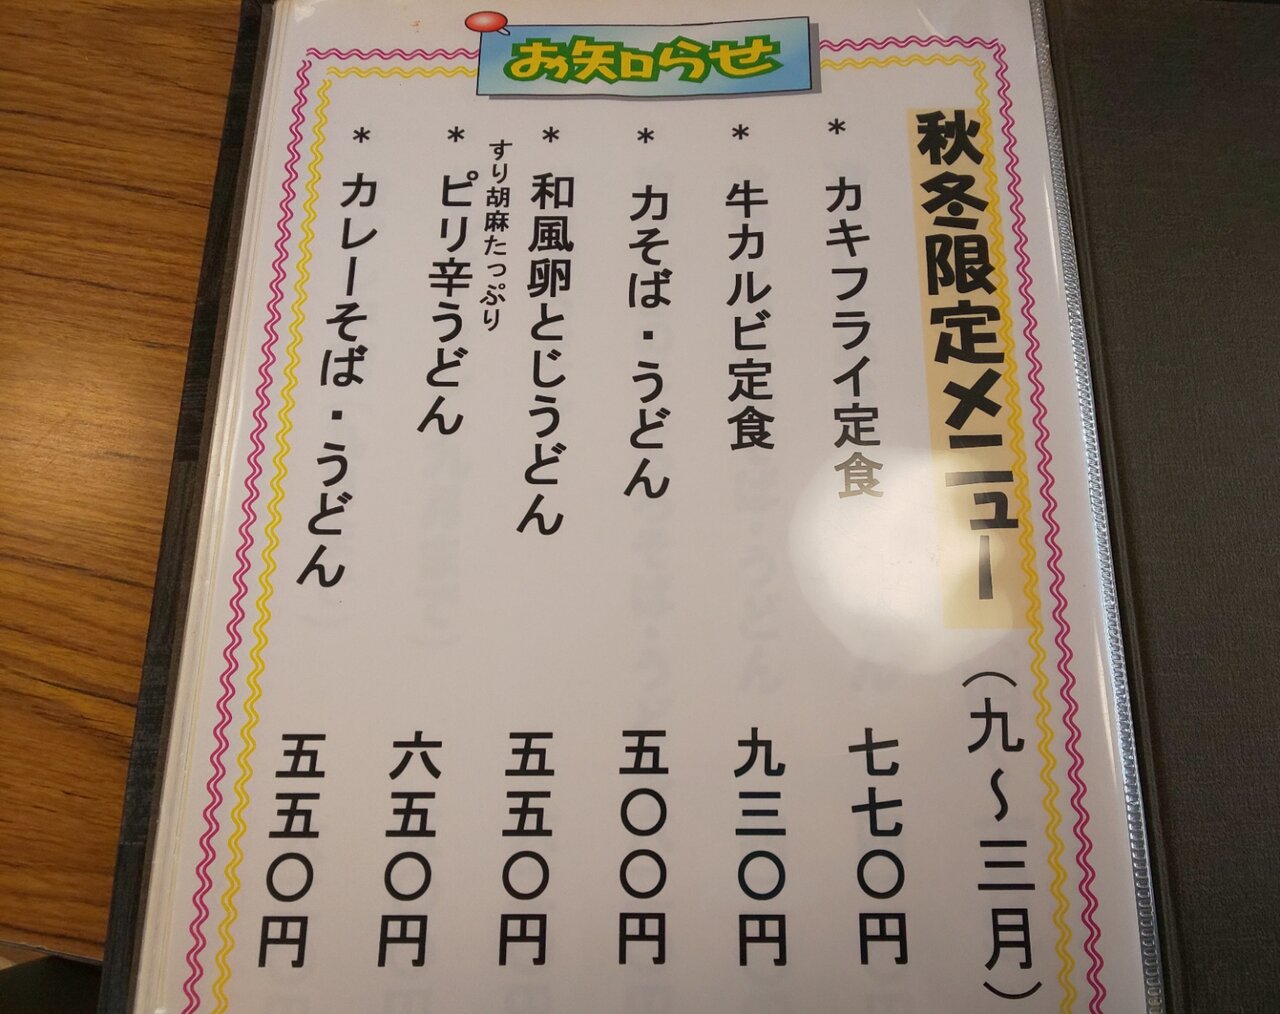 お知らせ
秋冬限定メニュー（九〜三月）
＊カキフライ定食 七七〇円
＊牛カルビ定食 九三〇円
＊力そば・うどん 五〇〇円
＊和風卵とじうどん 五五〇円
すり胡麻たっぷり
＊ピリ辛うどん 六五〇円
＊カレーそば・うどん 五五〇円